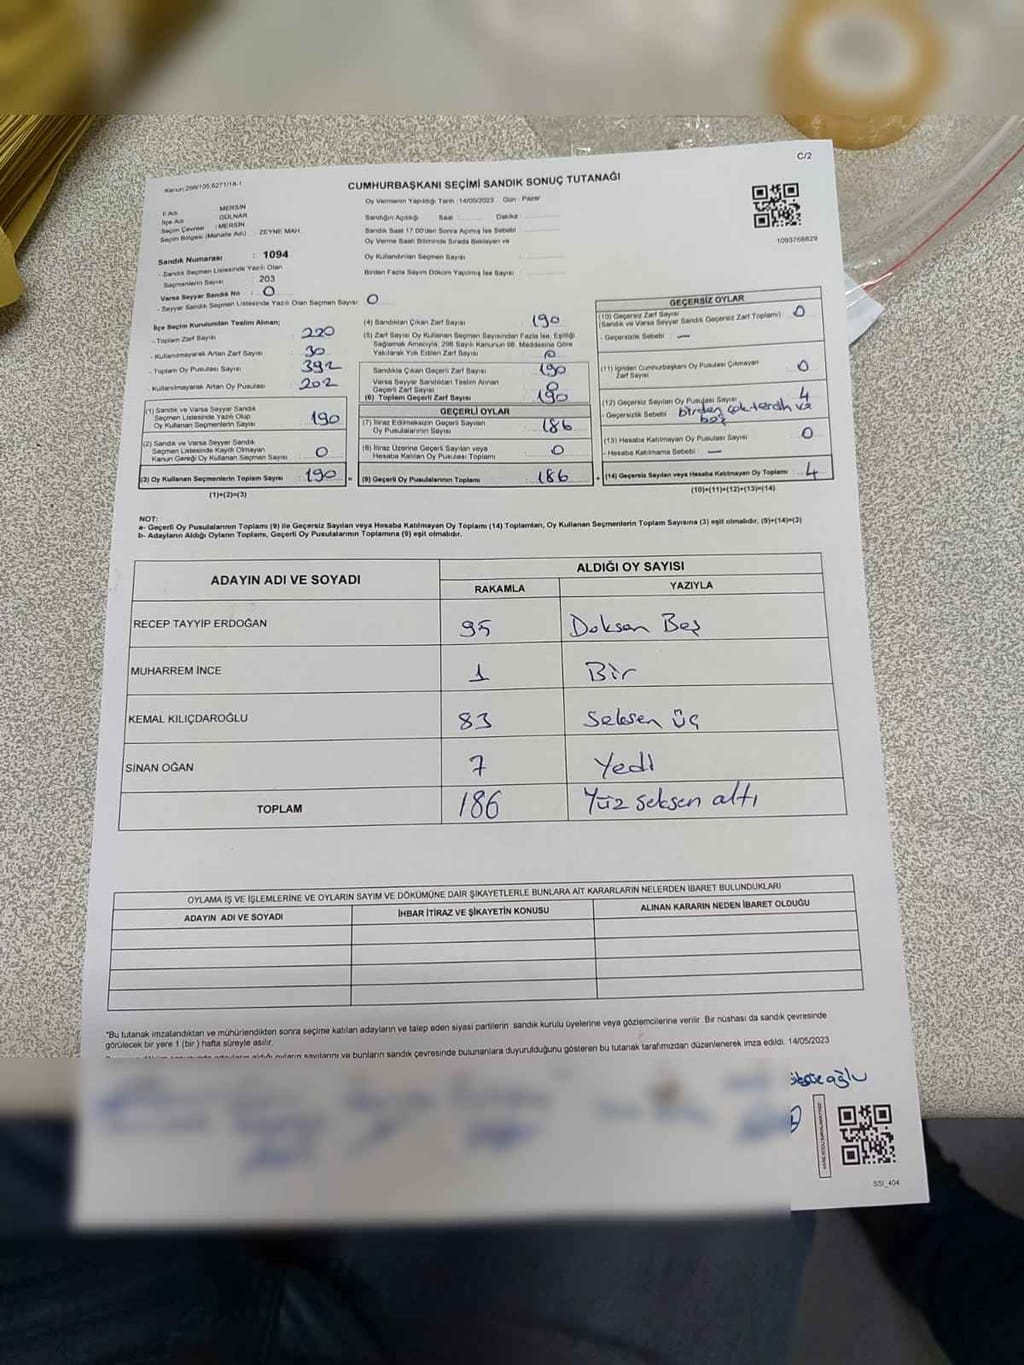 C/2
Kanun:298/105;6271/18-1
CUMHURBAŞKANI SEÇİMİ SANDIK SONUÇ TUTANAĞI
İl Adı MERSİN
İlçe Adı GÜLNAR
Seçim Çevresi : MERSİN
Seçim Bölgesi (Mahalle Adı) : ZEYNE MAH.
Sandık Numarası : 1094
- Sandık Seçmen Listesinde Yazılı Olan
Seçmenlerin Sayısı : 203
Varsa Seyyar Sandık No : 0
- Seyyar Sandık Seçmen Listesinde Yazılı Olan Seçmen Sayısı: 0
Oy Vermenin Yapıldığı Tarih :14/05/2023 Gün : Pazar
Sandığın Açıldığı Saat : Dakika :
Sandık Saat 17.00'den Sonra Açılmış İse Sebebi :
Oy Verme Saati Bitiminde Sırada Bekleyen ve
Oy Kullandırılan Seçmen Sayısı :
Birden Fazla Sayım Döküm Yapılmış İse Sayısı :
1093768829
İlçe Seçim Kurulundan Teslim Alınan;
- Toplam Zarf Sayısı : 220
- Kullanılmayarak Artan Zarf Sayısı : 30
- Toplam Oy Pusulası Sayısı : 392
- Kullanılmayarak Artan Oy Pusulası : 202
(1) Sandık ve Varsa Seyyar Sandık
Seçmen Listesinde Yazılı Olup
Oy Kullanan Seçmenlerin Sayısı : 190
(2) Sandık ve Varsa Seyyar Sandık
Seçmen Listesinde Kayıtlı Olmayan
Kanun Gereği Oy Kullanan Seçmen Sayısı : 0
(3) Oy Kullanan Seçmenlerin Toplam Sayısı : 190
(1)+(2)=(3)
(4) Sandıktan Çıkan Zarf Sayısı : 190
(5) Zarf Sayısı Oy Kullanan Seçmen Sayısından Fazla İse, Eşitliği
Sağlamak Amacıyla; 298 Sayılı Kanunun 98. Maddesine Göre
Yakılarak Yok Edilen Zarf Sayısı : 0
Sandıkta Çıkan Geçerli Zarf Sayısı : 190
Varsa Seyyar Sandıktan Teslim Alınan
Geçerli Zarf Sayısı : 0
(6) Toplam Geçerli Zarf Sayısı : 190
GEÇERLİ OYLAR
(7) İtiraz Edilmeksizin Geçerli Sayılan
Oy Pusulalarının Sayısı : 186
(8) İtiraz Üzerine Geçerli Sayılan veya
Hesaba Katılan Oy Pusulası Toplamı : 0
(9) Geçerli Oy Pusulalarının Toplamı : 186
GEÇERSİZ OYLAR
(10) Geçersiz Zarf Sayısı : 0
(Sandık ve Varsa Seyyar Sandık Geçersiz Zarf Toplamı)
- Geçersizlik Sebebi : —
(11) İçinden Cumhurbaşkanı Oy Pusulası Çıkmayan
Zarf Sayısı : 0
(12) Geçersiz Sayılan Oy Pusulası Sayısı : 4
- Geçersizlik Sebebi : birden çok tercih ve
boş
(13) Hesaba Katılmayan Oy Pusulası Sayısı : 0
- Hesaba Katılmama Sebebi : —
(14) Geçersiz Sayılan veya Hesaba Katılmayan Oy Toplamı : 4
(10)+(11)+(12)+(13)=(14)
NOT:
a- Geçerli Oy Pusulalarının Toplamı (9) ile Geçersiz Sayılan veya Hesaba Katılmayan Oy Toplamı (14) Toplamları, Oy Kullanan Seçmenlerin Toplam Sayısına (3) eşit olmalıdır, (9)+(14)=(3)
b- Adayların Aldığı Oyların Toplamı, Geçerli Oy Pusulalarının Toplamına (9) eşit olmalıdır.
ADAYIN ADI VE SOYADI ALDIĞI OY SAYISI
RAKAMLA YAZIYLA
RECEP TAYYİP ERDOĞAN 95 Doksan Beş
MUHARREM İNCE 1 Bir
KEMAL KILIÇDAROĞLU 83 Seksen üç
SİNAN OĞAN 7 Yedi
TOPLAM 186 Yüz seksen altı
OYLAMA İŞ VE İŞLEMLERİNE VE OYLARIN SAYIM VE DÖKÜMÜNE DAİR ŞİKAYETLERLE BUNLARA AİT KARARLARIN NELERDEN İBARET BULUNDUKLARI
ADAYIN ADI VE SOYADI İHBAR İTİRAZ VE ŞİKAYETİN KONUSU ALINAN KARARIN NEDEN İBARET OLDUĞU
*Bu tutanak imzalandıktan ve mühürlendikten sonra seçime katılan adayların ve talep eden siyasi partilerin sandık kurulu üyelerine veya gözlemcilerine verilir .Bir nüshası da sandık çevresinde
görülecek bir yere 1 (bir ) hafta süreyle asılır.
aldığı oyların sayılarını ve bunların sandık çevresinde bulunanlara duyurulduğunu gösteren bu tutanak tarafımızdan düzenlenerek imza edildi. 14/05/2023
SSİ_404